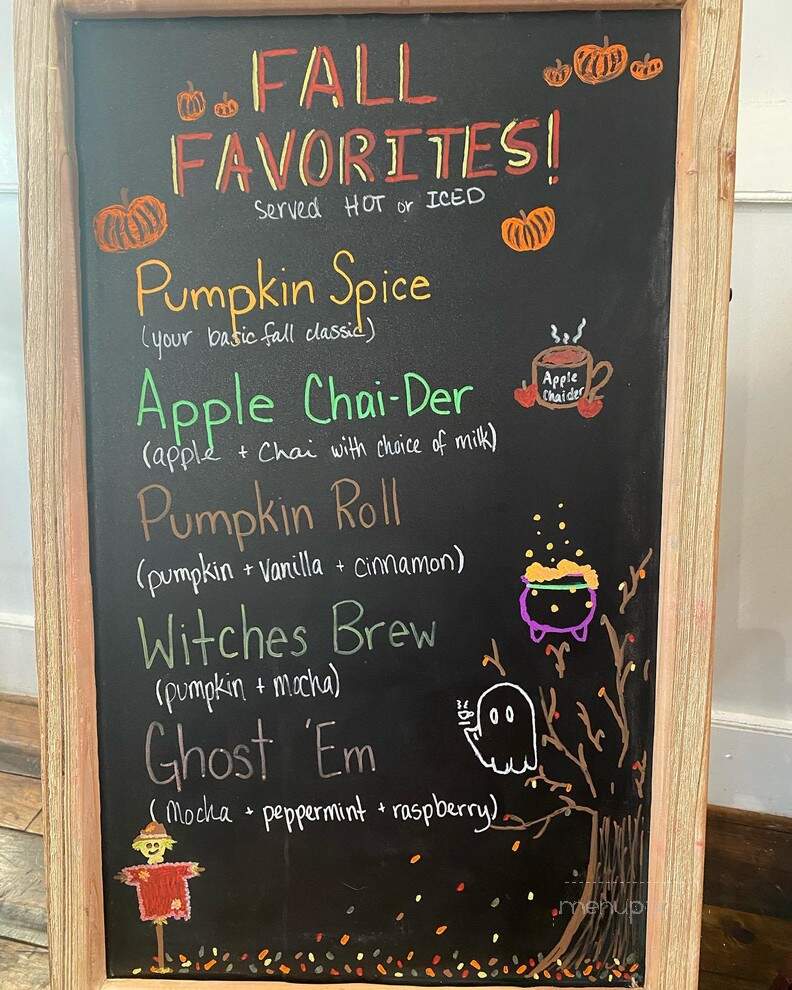 FALL
FAVORITES!
served HOT or ICED
Pumpkin Spice
(your basic fall classic)
Apple
Chaider
Apple Chai-Der
(apple + Chai with choice of milk)
Pumpkin Roll
(pumpkin + vanilla + cinnamon)
Witches Brew
(pumpkin + mocha)
Ghost 'Em
(Mocha + peppermint + raspberry)
menup